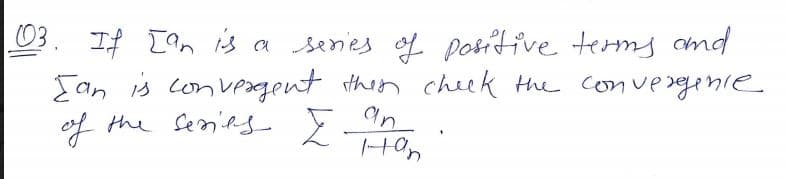 Q3. If Σan is a series of positive terms and
Σan is convergent then check the convergence
of the series Σ an/1+an.